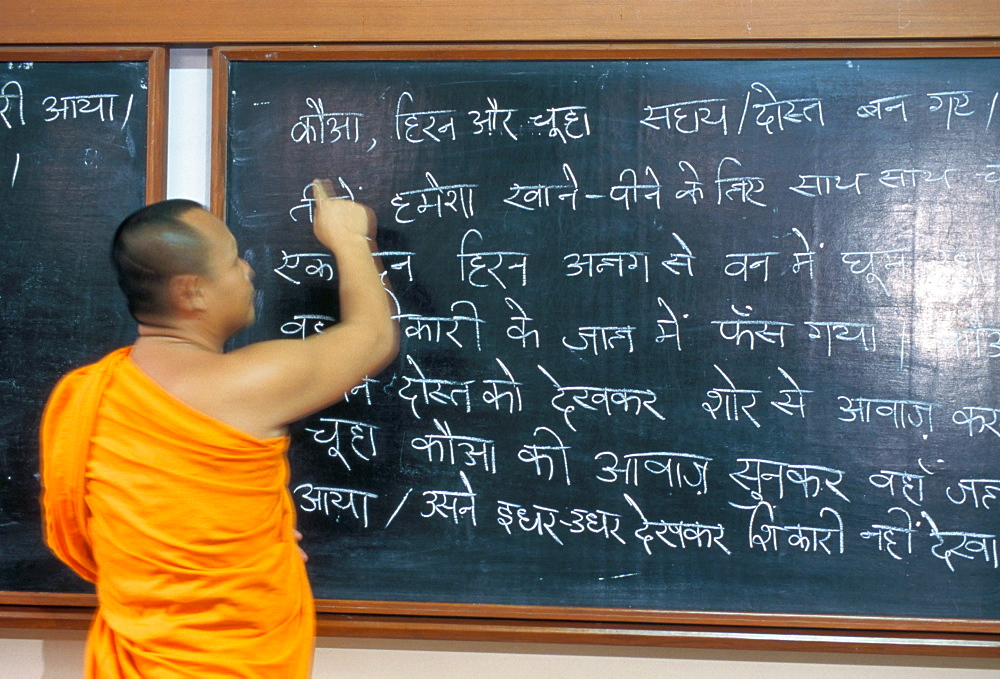 री आया/
कौआ, हिरन और चूहा सहाय/दोस्त बन गए/
हमेशा खाने-पीने के लिए साथ साथ
एक हिरन अलग से वन में
के जाल में फँस गया |
दोस्त को देखकर शोर से आवाज़
चूहा कौआ की आवाज़ सुनकर वहाँ
आया / उसने इधर-उधर देखकर शिकारी नहीं देखा